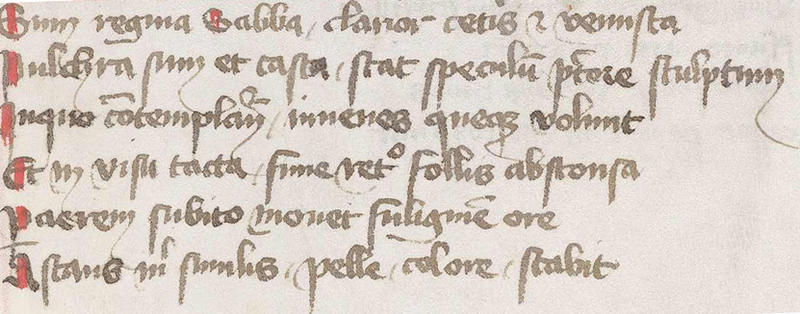 Sum regina Sabba, clarior cetis et venusta
Pulchra sum et casta, stat speculum pectore sculptum
Inquo contemplantur, iuuenes quecque volunt
Et in visu tacta, fune retro follis abstonsa
Paerem subito mouet fuligine ore
Astans similis, pelle, colore, stabit